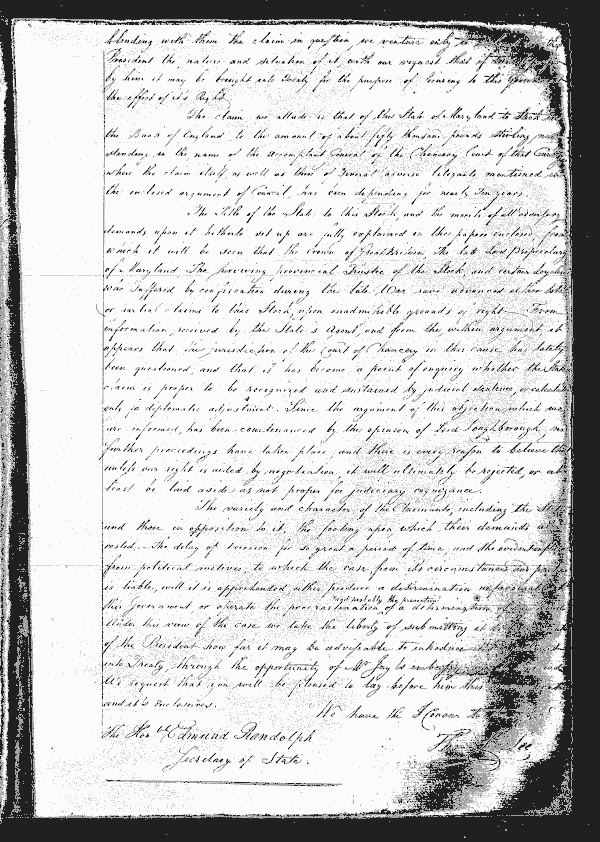 blending with them the claim in question we venture only to
President the nature and situation of it, with our request that if
by him it may be brought into Treaty for the purpose of securing to this Govern
the effect of it's Right.
The claim we allude is that of this State of Maryland to Stock in
the Bank of England to the amount of about fifty thousand pounds sterling
standing in the name of the Accomptant General of the Chancery Court of that
where the claim itself as well as those of several adverse litigants mentioned in
the enclosed argument of Council, has been depending for nearly Ten years.
The Title of the State to this Stock, and the merits of all
demands upon it hitherto set up are fully explained in the papers enclosed, from
which it will be seen that the Crown of Great Britain, The late Lord Proprietary
of Maryland, The provincial Trustee of the Stock, and certain Loyalists
who suffered by confiscation during the late War have advanced either total
or partial claims to this Stock, upon inadmissible grounds of right. From
information received by the State's Agent, and from the within argument it
appears that the jurisdiction of the Court of Chancery in this cause has lately
been questioned, and that it has become a point of enquiry whether the State
claim is proper to be recognized and sustained by judicial sentence, or
only to diplomatic adjustment. Since the argument of this objection, which we
are informed, has been countenanced by the opinion of Lord Loughborough, no
further proceedings have taken place, and there is every reason to believe that
unless our right is aided by negotiation, it will ultimately be rejected, or at
least be laid aside as not proper for judiciary cognizance.
The variety and character of the Claimants, including the State
and those in opposition to it, the footing upon which their demands are
rested, The delay of decision for so great a period of time, and the evident
from political motives, to which the case from its circumstances
is liable, will it is apprehended either produce a determination unfavorable to
this Government or operate the procrastination of a determination
Under this view of the case we take the liberty of submitting it
of the President how far it may be adviseable to introduce
into Treaty, through the opportunity of Mr Jay's embassy
We request that you will be pleased to lay before him this
and it's inclosures.
We have the Honour to
The Honble Edmund Randolph
Secretary of State.
Lee